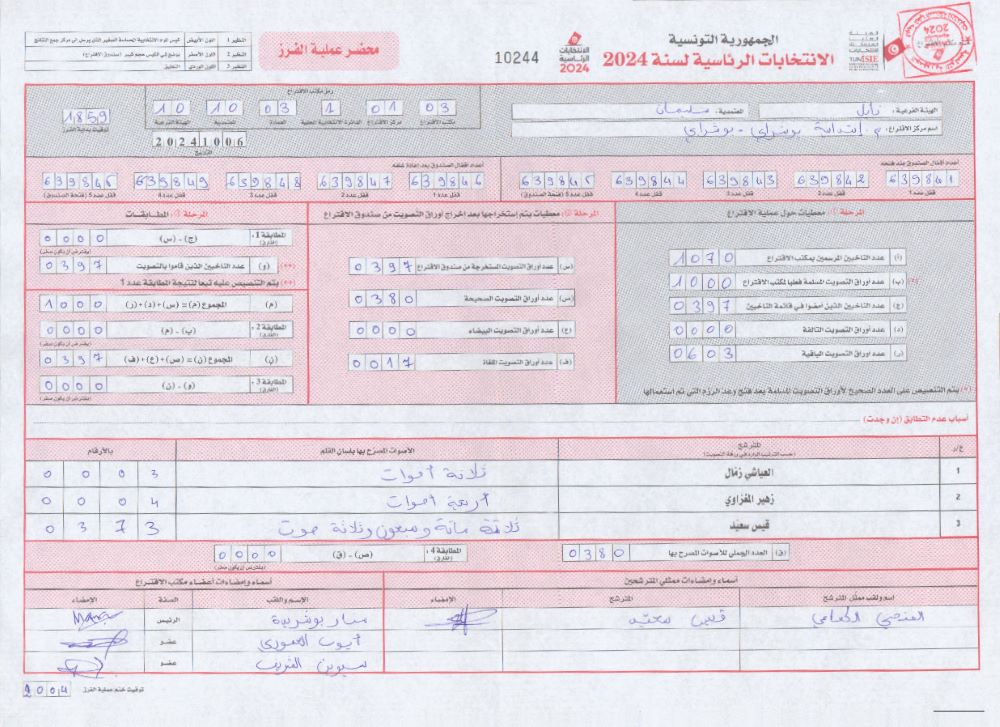 الجمهورية التونسية
الانتخابات الرئاسية لسنة 2024
الانتخابات الرئاسية 2024
10244
محضر عملية الفرز
النظير 1 اللون الأبيض
النظير 2 اللون الأصفر يوضع في الكيس حجم كبير (صندوق الاقتراع)
النظير 3 اللون الوردي التعليق
الهيئة الفرعية : نابل العمادية : سليمان
اسم مركز الاقتراع :
رمز مكتب الاقتراع
03 01 1 03 10 10
مكتب الاقتراع مركز الاقتراع الدائرة الانتخابية المحلية العمادة المعتمدية الهيئة الفرعية
20241006
التاريخ
1859
توقيت بداية الفرز
أعداد أقفال الصندوق عند فتحه
639841 639842 639843 639844 639845
قفل عدد 1 قفل عدد 2 قفل عدد 3 قفل عدد 4 قفل عدد 5 (فتحة الصندوق)
أعداد أقفال الصندوق بعد إعادة غلقه
639846 639847 639848 639849
قفل عدد 1 قفل عدد 2 قفل عدد 3 قفل عدد 4 قفل عدد 5 (فتحة الصندوق)
المرحلة ①: معطيات حول عملية الاقتراع
(أ) عدد الناخبين المرسمين بمكتب الاقتراع 1070
(ب) عدد أوراق التصويت المسلمة فعليا لمكتب الاقتراع 1000
(ج) عدد الناخبين الذين أمضوا في قائمة الناخبين 0397
(د) عدد أوراق التصويت التالفة 0000
(ر) عدد أوراق التصويت الباقية 0603
(*) يتم التنصيص على العدد الصحيح لأوراق التصويت المسلمة بعد فتح وعد الرزم التي تم استعمالها
المرحلة ②: معطيات يتم إستخراجها بعد إخراج أوراق التصويت من صندوق الاقتراع
(س) عدد أوراق التصويت المستخرجة من صندوق الاقتراع 0397
(ص) عدد أوراق التصويت الصحيحة 0380
(ع) عدد أوراق التصويت البيضاء 0000
(ف) عدد أوراق التصويت الملغاة 0017
المرحلة ③: المطابقات
المطابقة 1 : (الفارق) (ج) - (س) 0000
(يفترض أن يكون صفر)
(**) (و) عدد الناخبين الذين قاموا بالتصويت 0397
(**) يتم التنصيص عليه تبعا لنتيجة المطابقة عدد 1
(م) المجموع (م) = (س)+(د)+(ر) 1000
المطابقة 2 : (الفارق) (ب) - (م) 0000
(يفترض أن يكون صفر)
(ن) المجموع (ن) = (ص)+(ع)+(ف) 0397
المطابقة 3 : (الفارق) (و) - (ن) 0000
(يفترض أن يكون صفر)
أسباب عدم التطابق (إن وجدت)
ع/ر المترشح الأصوات المصرح بها بلسان القلم بالأرقام
(حسب الترتيب الوارد في ورقة التصويت)
1 العياشي زمّال ثلاثة أصوات 0003
2 زهير المغزاوي أربعة أصوات 0004
3 قيس سعيّد ثلاثة مائة وسبعون وثلاثة صوت 0373
(ق) العدد الجملي للأصوات المصرح بها 0380
المطابقة 4 : (الفارق) (ص) - (ق) 0000
(يفترض أن يكون صفر)
أسماء وإمضاءات ممثلي المترشحين
اسم ولقب ممثل المترشح المترشح الإمضاء
قيس سعيّد
أسماء وإمضاءات أعضاء مكتب الاقتراع
الإسم واللقب الصفة الإمضاء
الرئيس
عضو
عضو
توقيت ختم عملية الفرز 2004